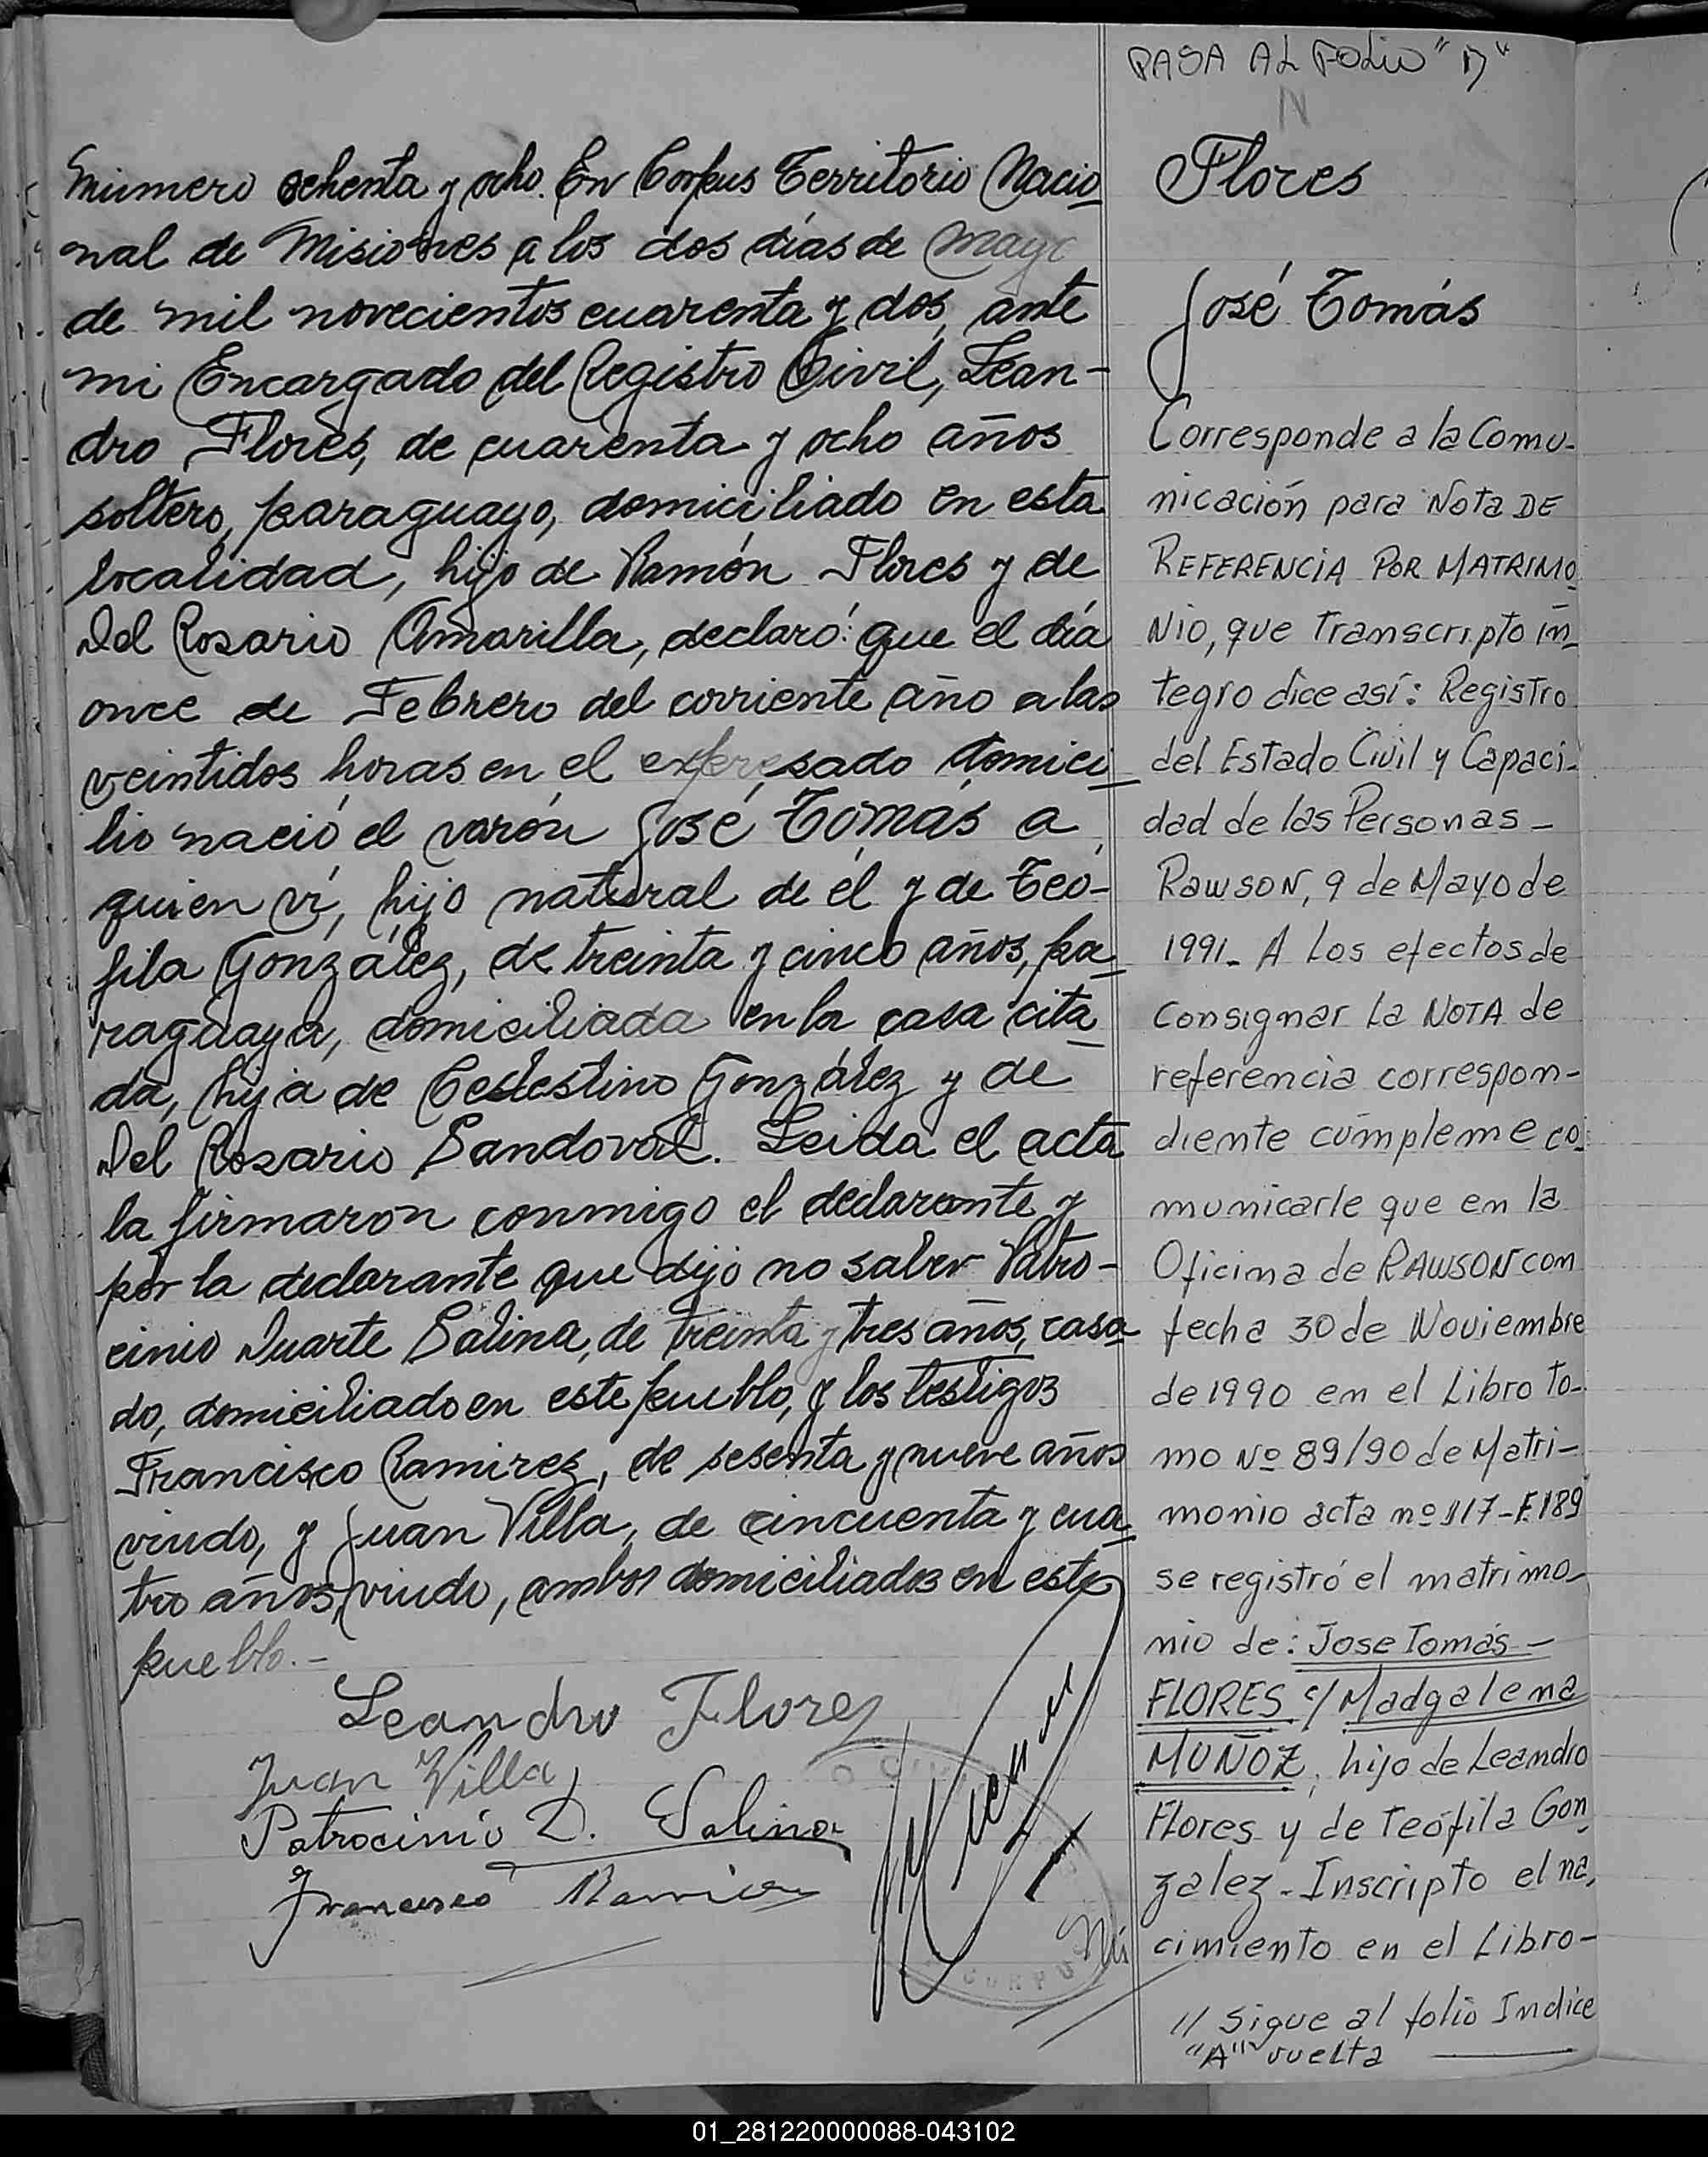 PASA AL FOLIO "N"
N
Número ochenta y ocho. En Corpus Territorio Nacio
nal de Misiones a los dos días de mayo
de mil novecientos cuarenta y dos, ante
mi Encargado del Registro Civil, Lean-
dro Flores, de cuarenta y ocho años
soltero, paraguayo, domiciliado en esta
localidad, hijo de Ramón Flores y de
Del Rosario Amarilla, declaró: que el día
once de Febrero del corriente año a las
veintidos horas en el expresado domici
lio nació el varón José Tomás a
quien ví, hijo natural de él y de Teó-
fila González, de treinta y cinco años, pa
raguaya, domiciliada en la casa cita
da, hija de Celestino González y de
Del Rosario Sandoval. Leida el acta
la firmaron conmigo el declarante y
por la declarante que dijo no saber Patro-
cinio Duarte Salina, de treinta y tres años, casa
do, domiciliado en este pueblo, y los testigos
Francisco Ramirez, de sesenta y nueve años
viudo, y Juan Villa, de cincuenta y cua
tro años, viudo, ambos domiciliados en este
pueblo.-
Leandro Flores
Juan Villa
Patrocinio D. Salina
Francisco Ramirez
Flores
José Tomás
Corresponde a la Comu-
nicación para Nota DE
REFERENCIA POR MATRIMO
NIO, que Transcripto ín
tegro dice así: Registro
del Estado Civil y Capaci-
dad de las Personas -
RAWSON, 9 de Mayo de
1991- A Los efectos de
consignar La NOTA de
referencia correspon-
diente cúmpleme co
municarle que en la
Oficina de RAWSON con
fecha 30 de Noviembre
de 1990 en el Libro To-
mo Nº 89/90 de Matri-
monio acta nº 117-F.189
se registró el matrimo
nio de: Jose Tomás -
FLORES c/ Madgalena
MUÑOZ, hijo de Leandro
Flores y de Teófila Gon
zalez. Inscripto el na
cimiento en el Libro-
// Sigue al folio Indice
"A" vuelta
01_281220000088-043102